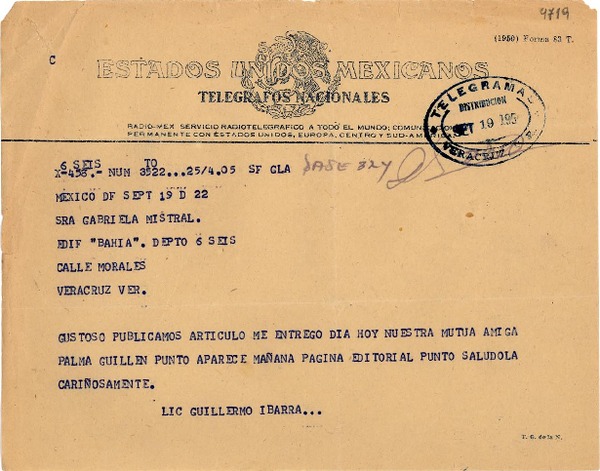 4719
(1950) Forma 83 T.
C
ESTADOS UNIDOS MEXICANOS
TELEGRAFOS NACIONALES
RADIO-MEX SERVICIO RADIOTELEGRAFICO A TODO EL MUNDO;
PERMANENTE CON ESTADOS UNIDOS, EUROPA, CENTRO Y SUD-
TELEGRAMAS
DISTRIBUCION
SEPT 19 195
VERACRUZ, VER.
6 SEIS TO
X-458.- NUM 3522...25/4.05 SF GLA
MEXICO DF SEPT 19 D 22
SRA GABRIELA MISTRAL.
EDIF "BAHIA". DEPTO 6 SEIS
CALLE MORALES
VERACRUZ VER.
GUSTOSO PUBLICAMOS ARTICULO ME ENTREGO DIA HOY NUESTRA MUTUA AMIGA
PALMA GUILLEN PUNTO APARECE MAÑANA PAGINA EDITORIAL PUNTO SALUDOLA
CARIÑOSAMENTE.
LIC GUILLERMO IBARRA...
T. G. de la N.